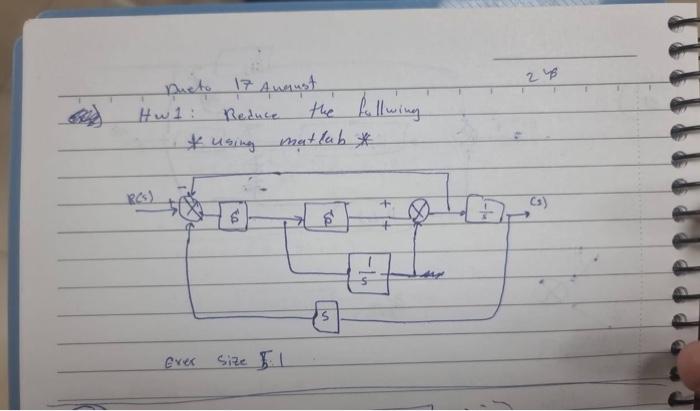 Dueto 17 August
Hw1: Reduce the follwing
* using matlab *
R(s) + - S S + + 1/s C(s)
1/s
S
Exer size 5.1